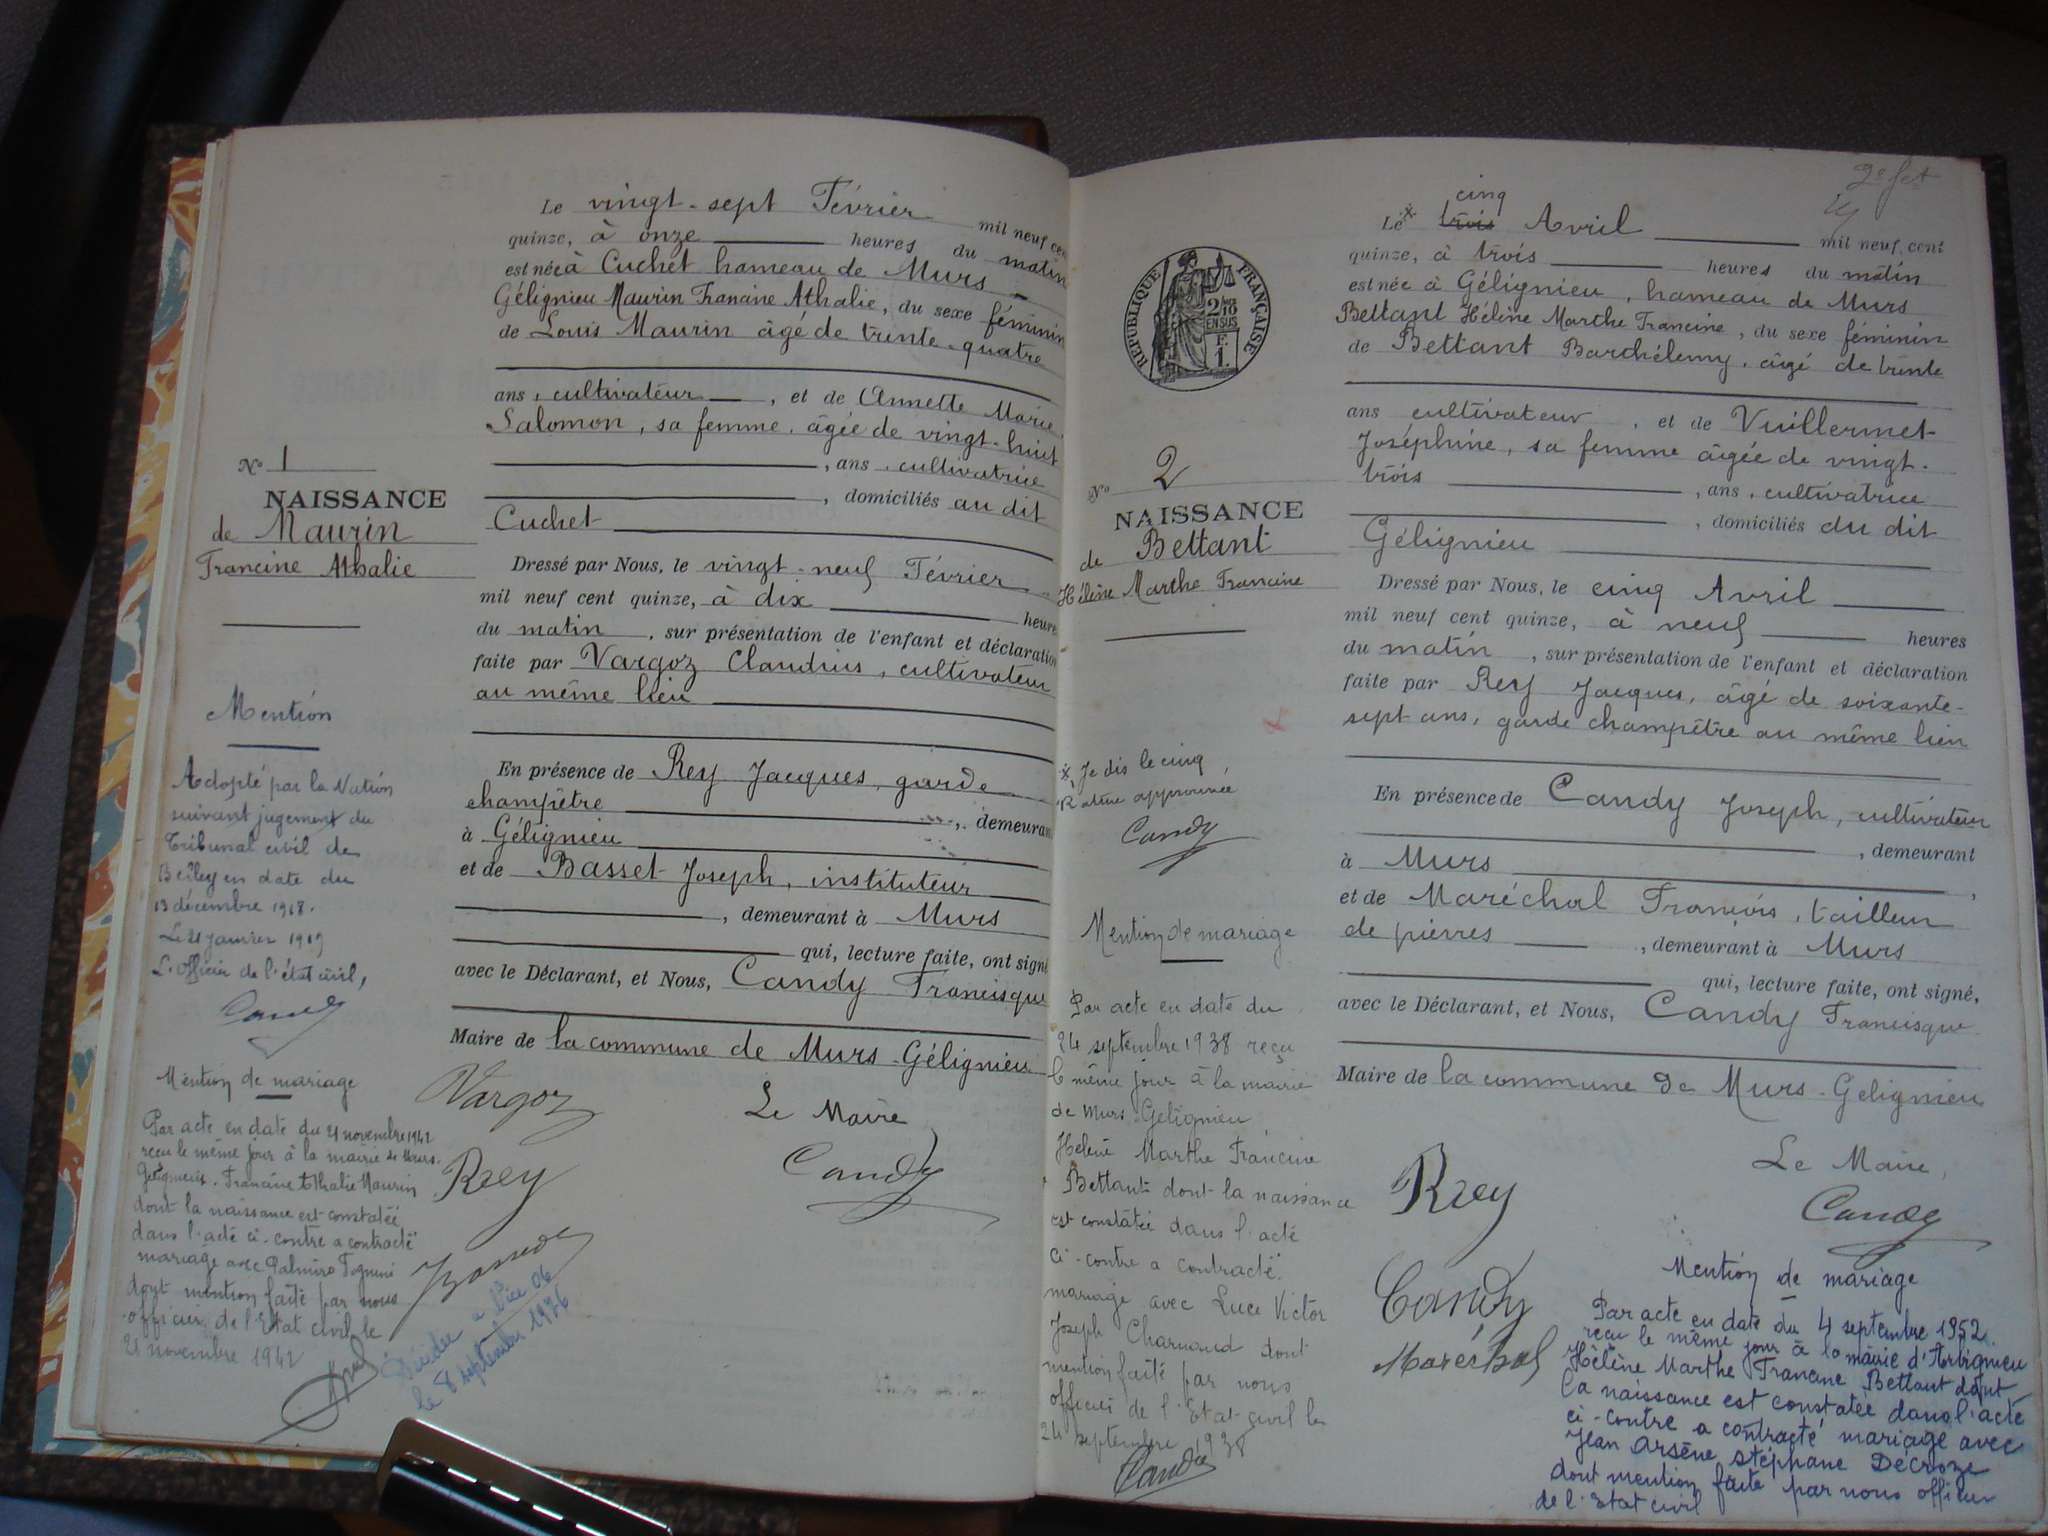 Le vingt-sept Février mil neuf cent
quinze, à onze heures du matin
est née à Cuchet hameau de Murs-
Gélignieu Maurin Francine Athalie, du sexe féminin
de Louis Maurin âgé de trente-quatre
ans, cultivateur, et de Annette Marie
Salomon, sa femme, âgée de vingt-huit
, ans, cultivatrice
, domiciliés au dit
Cuchet
Dressé par Nous, le vingt-neuf Février
mil neuf cent quinze, à dix heures
du matin, sur présentation de l'enfant et déclaration
faite par Vargoz Claudius, cultivateur
au même lieu
En présence de Rey Jacques, garde
champêtre, demeurant
à Gélignieu
et de Basset Joseph, instituteur
, demeurant à Murs
qui, lecture faite, ont signé
avec le Déclarant, et Nous, Candy Francisque
Maire de la commune de Murs-Gélignieu
Vargoz
Le Maire
Rey
Candy
No 1
NAISSANCE
de Maurin
Francine Athalie
Mention
Adopté par la Nation
suivant jugement du
Tribunal civil de
Belley en date du
13 décembre 1918.
Le 21 Janvier 1919
L'officier de l'état civil,
Candy
Mention de mariage
Par acte en date du 21 novembre 1942
reçu le même jour à la mairie de Murs-
Gélignieu. Francine Athalie Maurin
dont la naissance est constatée
dans l'acte ci-contre a contracté
mariage avec Palmiro Tognini
dont mention faite par nous
officier de l'Etat civil le
21 novembre 1942
Décédée à Nice 06
le 8 septembre 1976
2e fet
cinq
Le x trois Avril mil neuf cent
quinze, à trois heures du matin
est née à Gélignieu, hameau de Murs
Bettant Hélène Marthe Francine, du sexe féminin
de Bettant Barthélemy, âgé de trente
ans cultivateur, et de Vuillermet
Joséphine, sa femme âgée de vingt-
trois, ans, cultivatrice
, domiciliés du dit
Gélignieu
Dressé par Nous, le cinq Avril
mil neuf cent quinze, à neuf heures
du matin, sur présentation de l'enfant et déclaration
faite par Rey Jacques, âgé de soixante-
sept ans, garde champêtre au même lieu
En présence de Candy Joseph, cultivateur
, demeurant
à Murs,
et de Maréchal François, tailleur
de pierres, demeurant à Murs
qui, lecture faite, ont signé,
avec le Déclarant, et Nous, Candy Francisque
Maire de la commune de Murs-Gélignieu
Rey
Le Maire,
Candy
Candy
Maréchal
REPUBLIQUE FRANÇAISE
2/10
EN SUS
F.
1.
No 2
NAISSANCE
de Bettant
Hélène Marthe Francine
x Je dis le cinq,
Rature approuvée
Candy
Mention de mariage
Par acte en date du
24 septembre 1938 reçu
le même jour à la mairie
de Murs Gélignieu
Hélène Marthe Francine
Bettant dont la naissance
est constatée dans l'acte
ci-contre a contracté
mariage avec Luce Victor
Joseph Charnaud dont
mention faite par nous
officier de l'Etat-civil le
24 septembre 1938
Candy
Mention de mariage
Par acte en date du 4 septembre 1952
reçu le même jour à la mairie d'Arbignieu
Hélène Marthe Francine Bettant dont
la naissance est constatée dans l'acte
ci-contre a contracté mariage avec
Jean Arsène Stéphane Decroze
dont mention faite par nous officier
de l'Etat civil